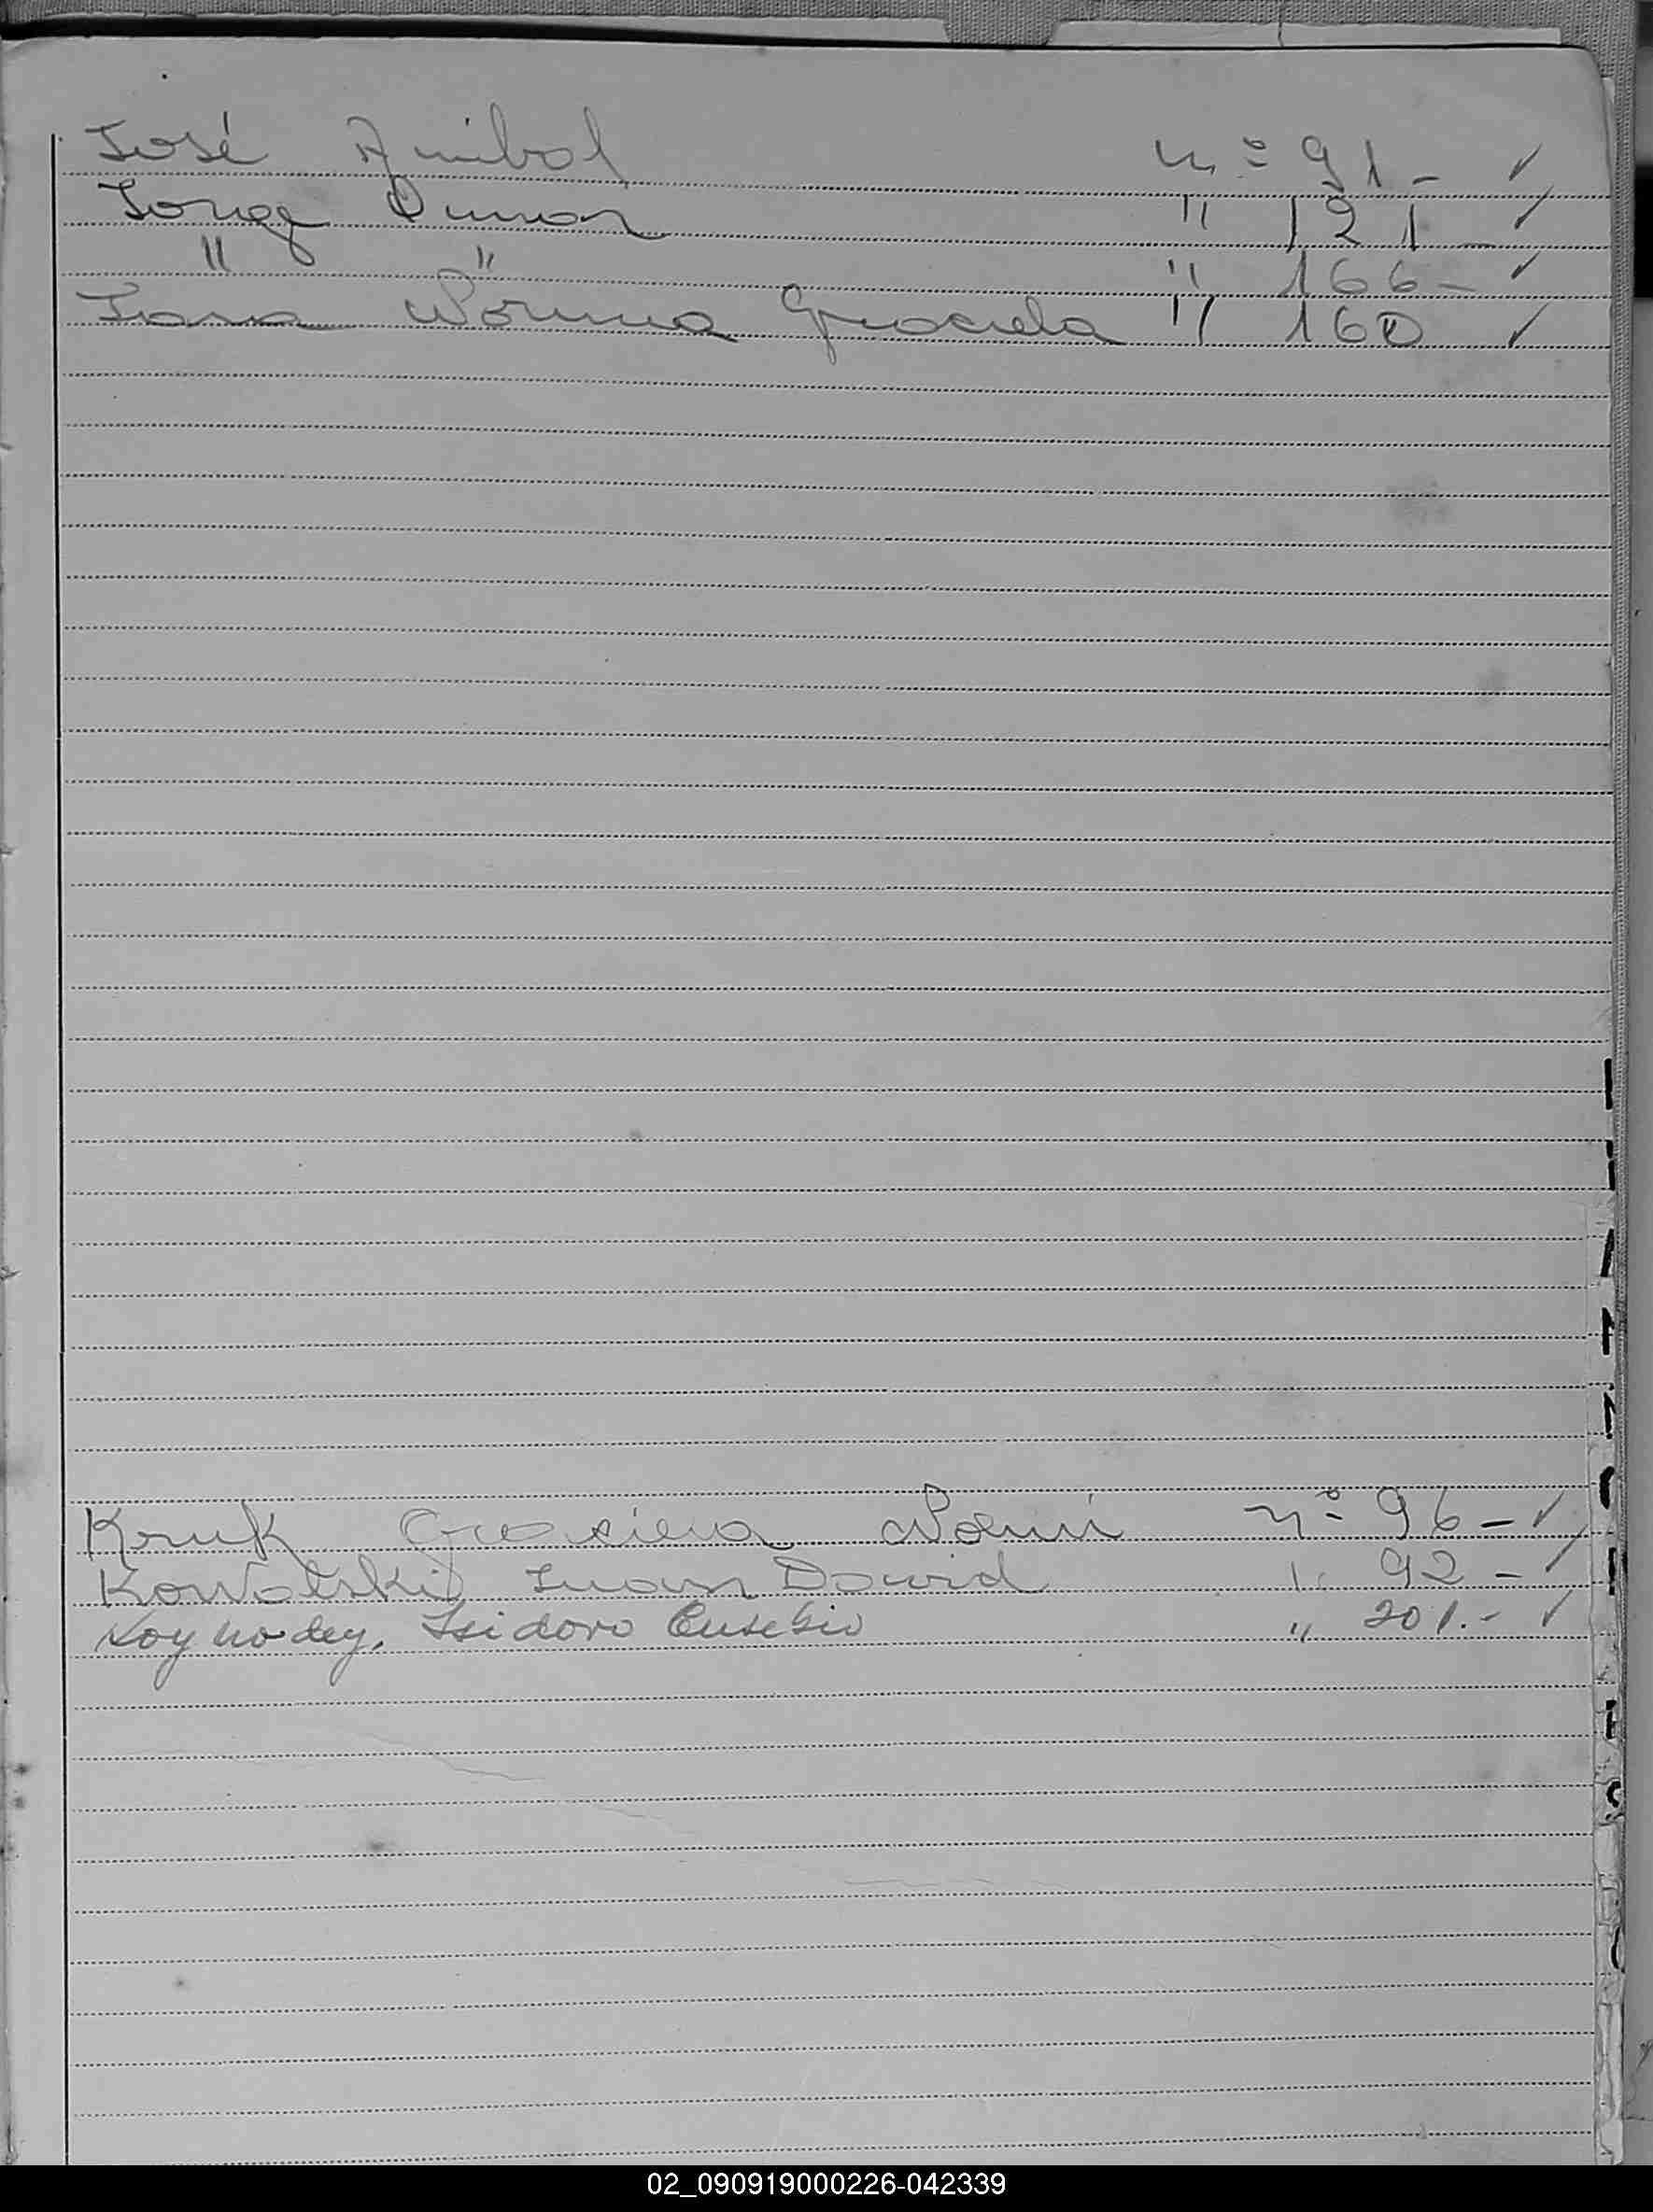 José Anibal nº 91- ✓
Jorge Omar " 121- ✓
" " " 166- ✓
Norma Graciela " 160 ✓
Kruk Graciela Noemi nº 96- ✓
Kowalski Juan David " 92- ✓
Isidoro Eusebio " 201.- ✓
02_090919000226-042339